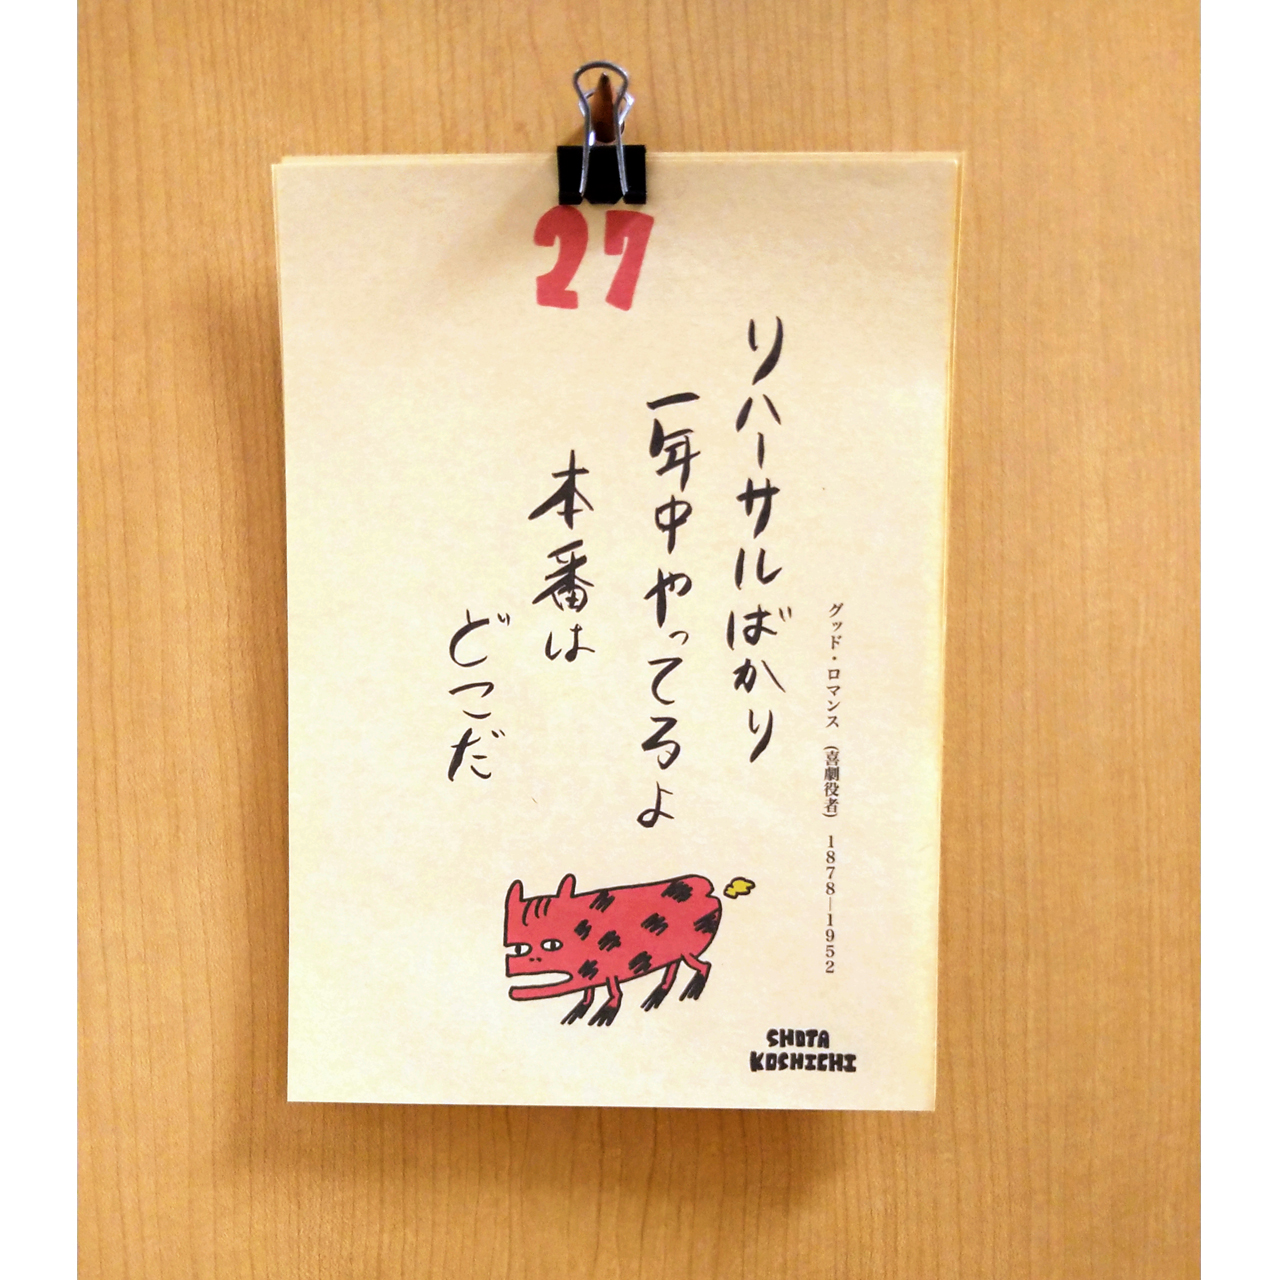 27
グッド・ロマンス (喜劇役者) 1878―1952
リハーサルばかり
一年中やってるよ
本番は
どこだ
SHOTA
KOSHICHI